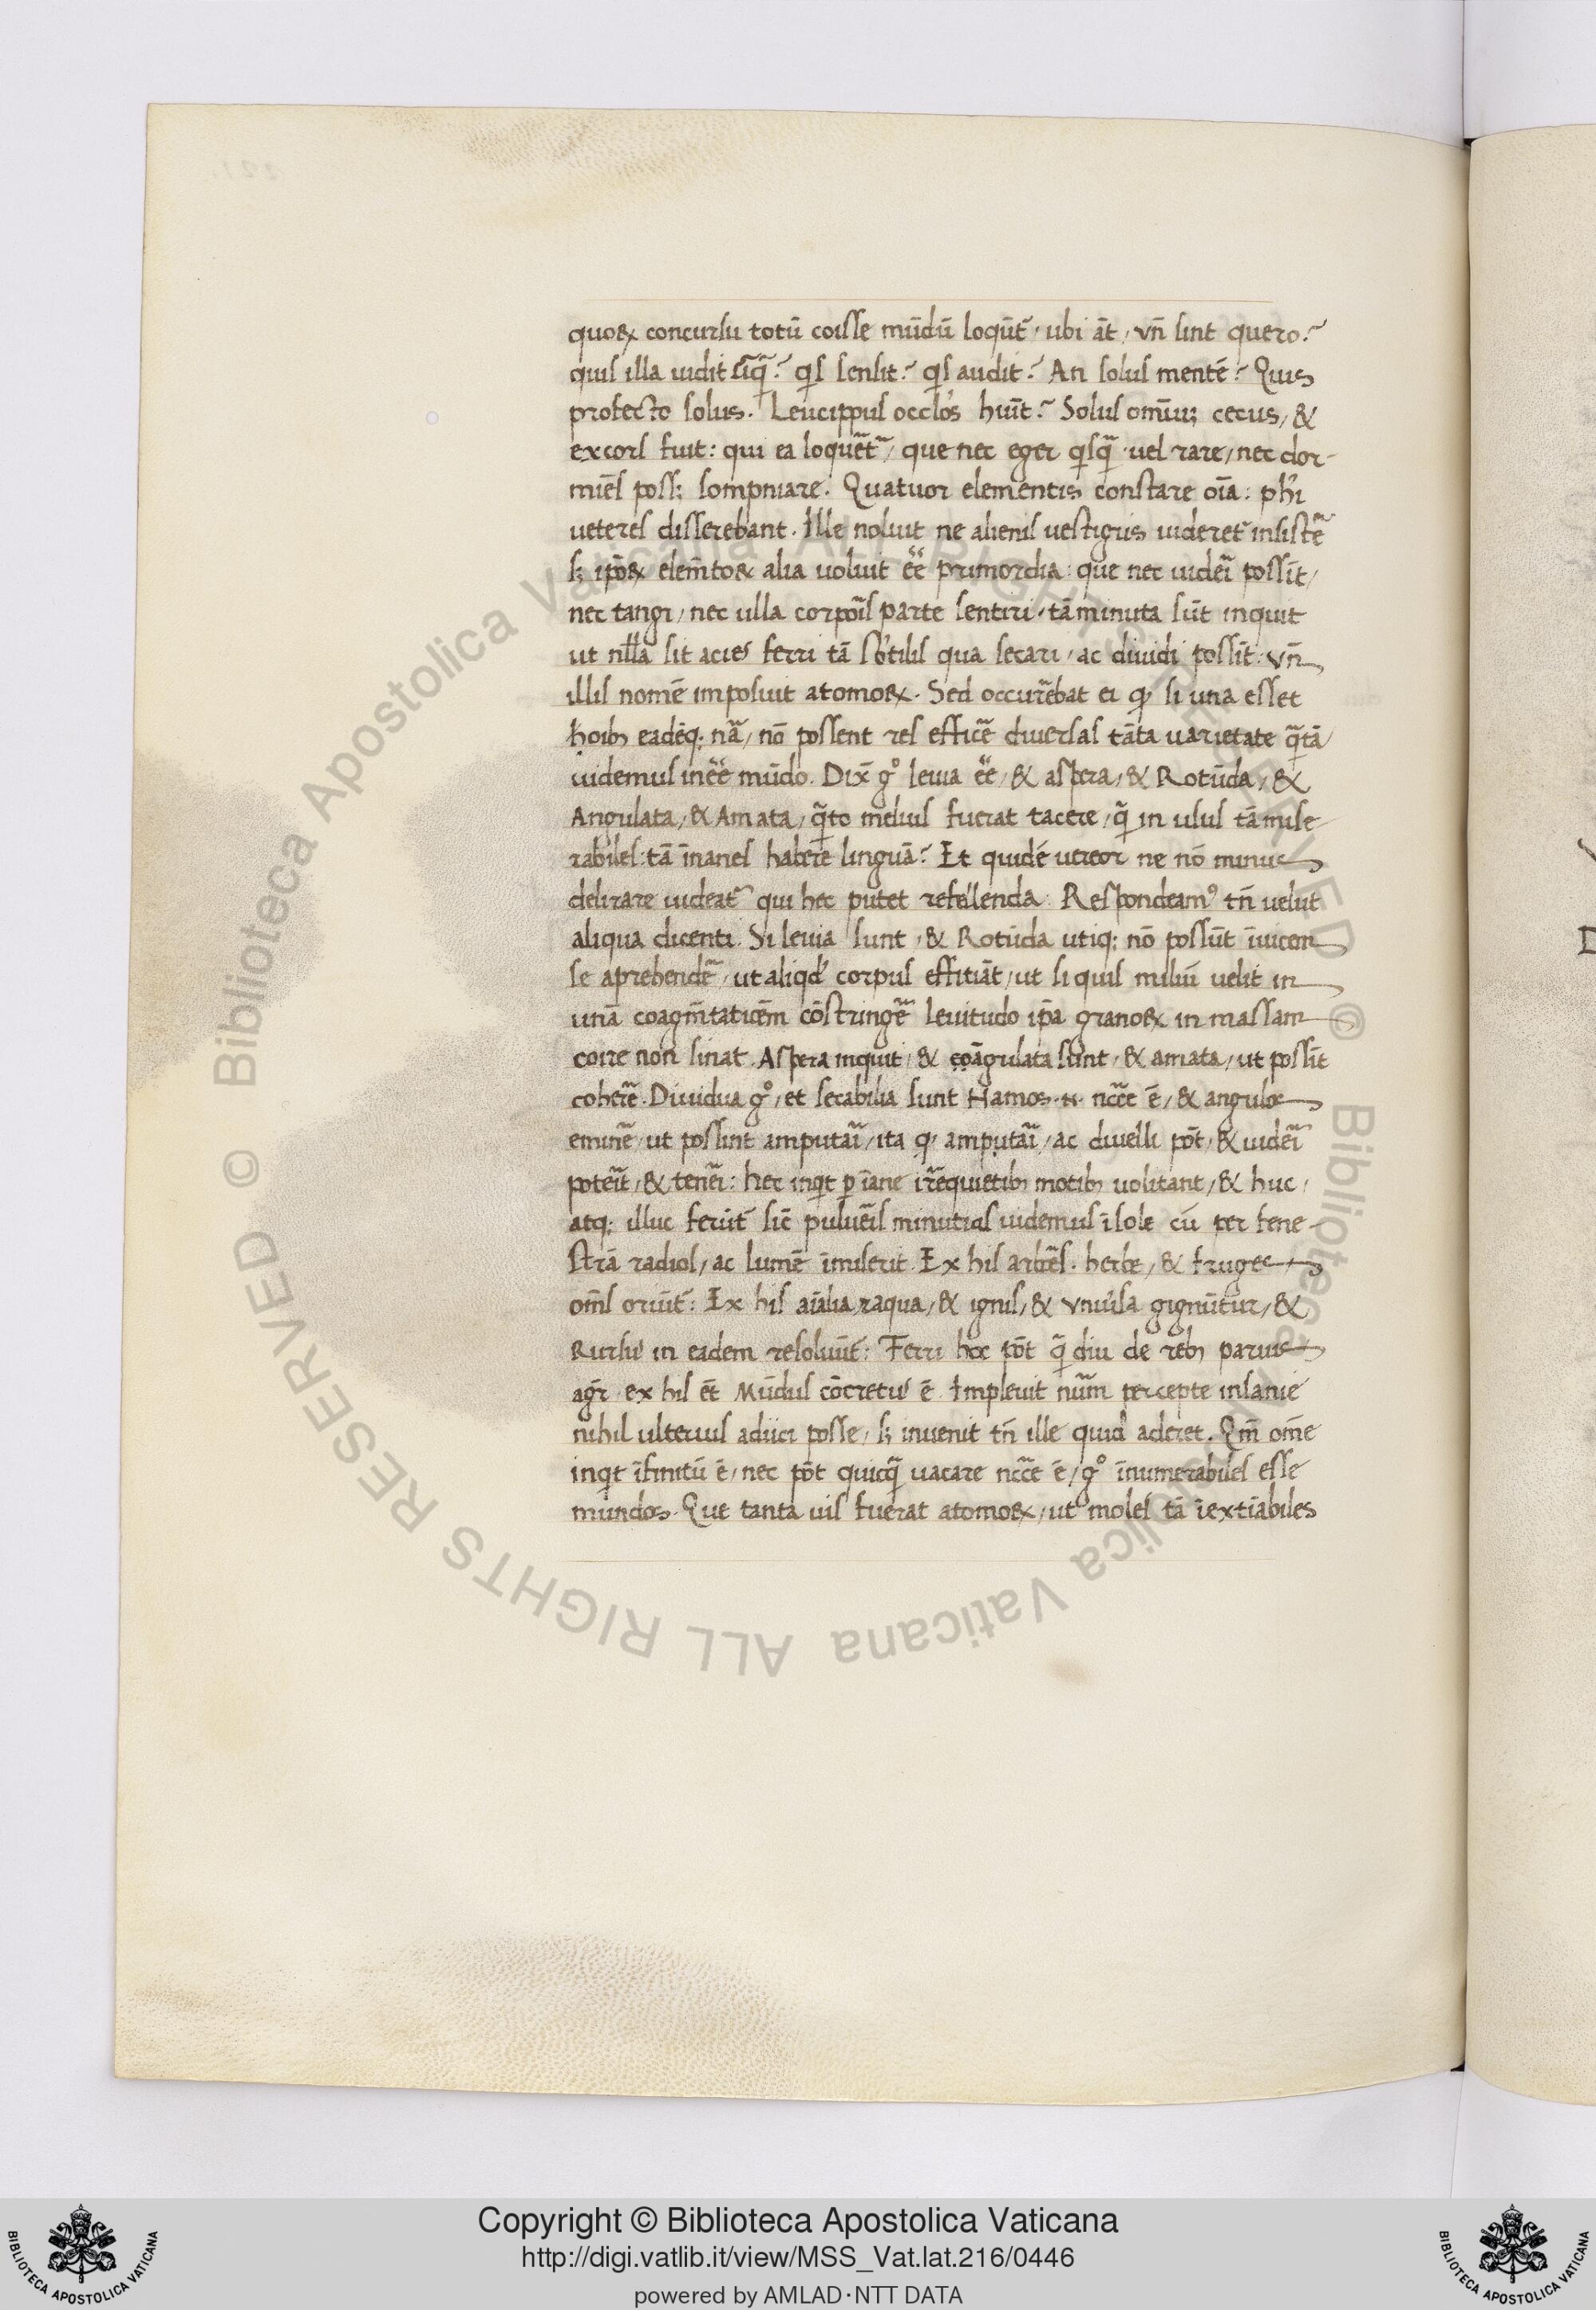 quoꝝ concursu totū coisse mūdū loqūt᷑ / ubi āt / vn̄ sint quero?
quis illa uidit ūq̄? qͥs sensit? qͥs audit? An solus mentē? Quis
profecto solus. Leucippus occlōs huīt? Solus omīuꝫ cecus / &
excors fuit: qui ea loquēt᷑ / que nec eger qͥsq̄ · uel rare / nec dor-
miēs possꝫ sompniare. Quatuor elementis constare oīa: phi
veteres disserebant. Ille noluit ne alienis vestigiis videret᷑ insistē
sꝫ ip̄oꝝ elem̄toꝝ alia voluit ēē primordia: que nec uidēi possīt /
nec tangi / nec ulla corpoīs parte sentiri · tā minuta sūt inquit
ut nlla sit acies ferri tā sbtilis qua secari / ac dividi possīt: vn̄
illis nomē imposuit atomoꝝ. Sed occurēbat ei ꝙ si una esset
hoibꝫ eadēqꝫ nā / nō possent res efficē diversas tāta varietate q̄tā
videmus inēē mūdo. Dix̄ gͦ levia ēē / & aspera / & Rotūda / &
Angulata / & Amata / q̄to melius fuerat tacere / q̄ in usus tā mise-
rabiles: tā īnanes habere linguā? Et quidē vereor ne nō minus
delirare videat᷑ qui hec putet refellenda: Respondeamꝰ tn̄ velut
aliqua dicenti. Si levia sunt / & Rotūda utiqꝫ nō possūt īuicem
se aprehendē / ut aliqd corpus effitiāt / ut si quis miliū velit in
unā coagm̄tatioēm cōstringē levitudo ip̄a granoꝝ in massam
coire non sinat. Aspera inquit / & coāgulata sunt / & amata / ut possīt
coherē. Dividua gͦ / et secabilia sunt Hamos .n. nc̄ce ē / & angulos
eminē / ut possint amputāi / ita qͥ amputāi / ac divelli pōt / & uidēi
potēīt / & tenēi: hec inqͥt ꝑ īane irrequietibꝫ motibꝫ volitant / & huc /
atqꝫ illuc ferūt᷑ sic̄ pulvēis minutias videmus ī sole cū per fene-
strā radios / ac lumē īmiserit. Ex his arbōes. herbe / & fruges
om̄s oriūt᷑: Ex his aīalia / & aqua / & ignis / & vnivsa gignūtur / &
Rursū in eadem resolvūt᷑: Ferri hoc pōt q̄ diu de rebꝫ parvis
agr̄ · ex his ēt Mūdus cōcretus ē. Implevit nūm percepte insanie
nihil ulterius adiici posse / sꝫ invenit tn̄ ille quid aderet. Qm̄ om̄e
inqͥt īfinitū ē / nec pōt quicq̄ vacare nc̄ce ē / gͦ īnumerabiles esse
mundos. Que tanta vis fuerat atomoꝝ / ut moles tā īextiābiles
Copyright © Biblioteca Apostolica Vaticana
http://digi.vatlib.it/view/MSS_Vat.lat.216/0446
powered by AMLAD·NTT DATA